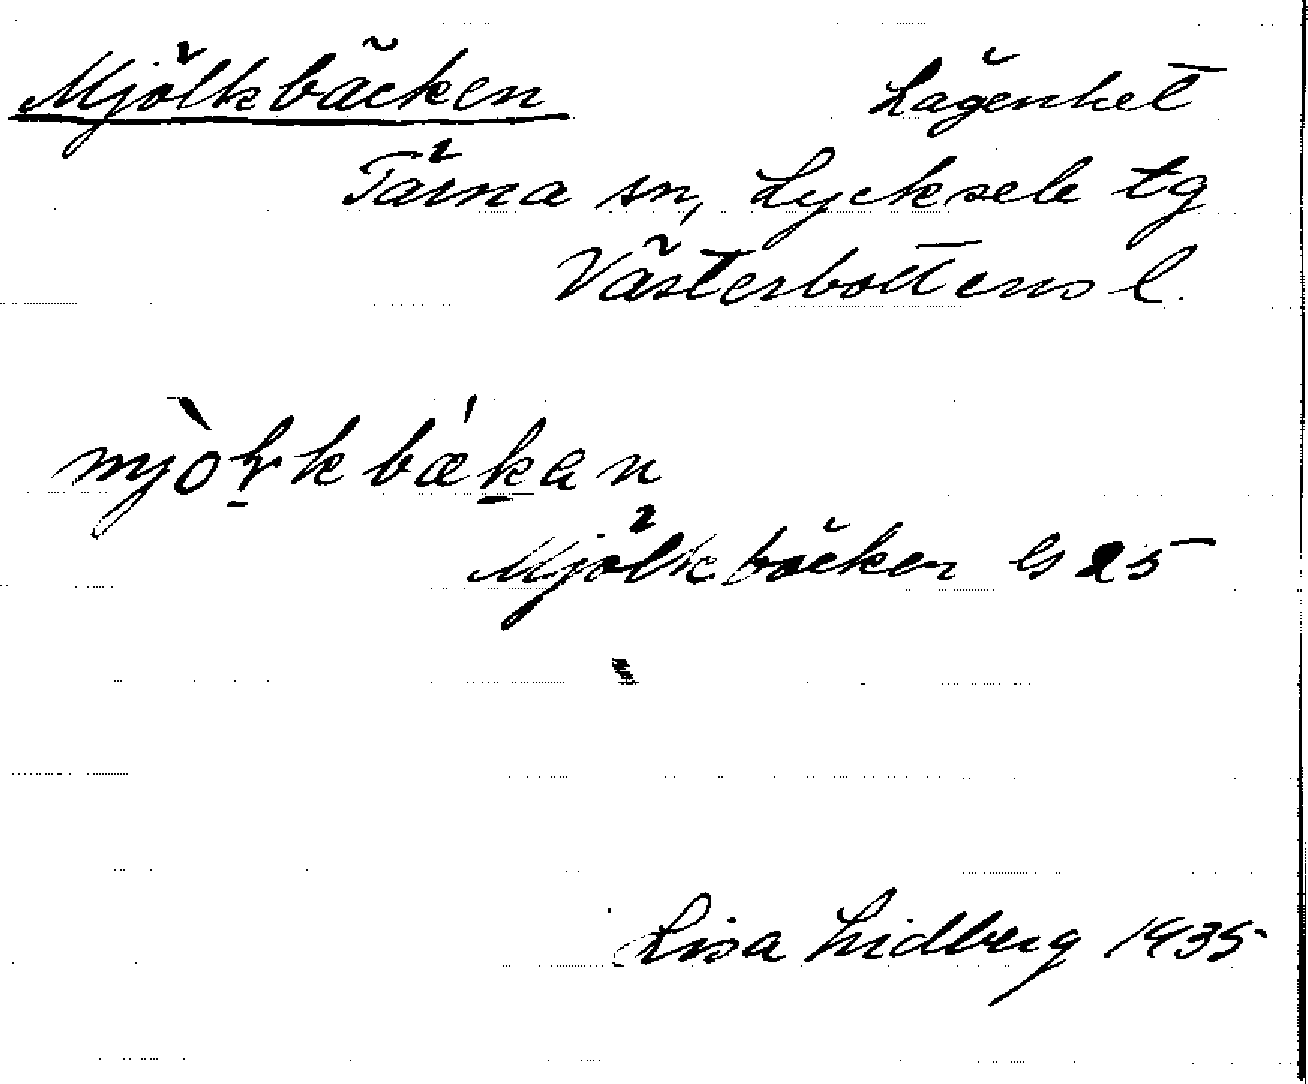 Mjölkbäcken Lägenhet
Tärna sn, Lycksele tg
Västerbottens l.
Mjölkbäcken G 25
Lisa Lidberg 1935